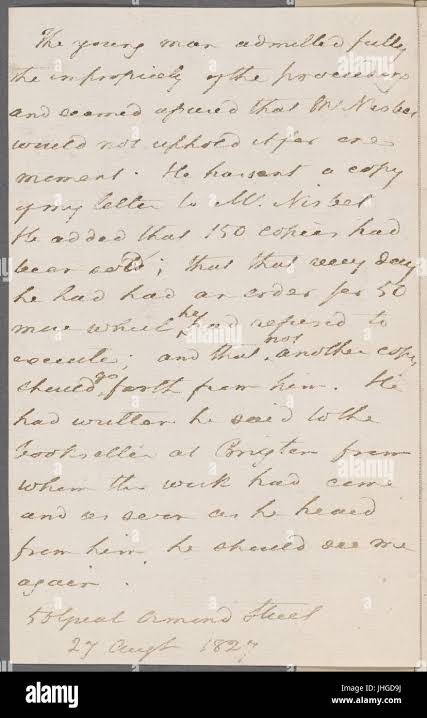 The young man admitted fully
the impropriety of the proceedings
and seemed assured that Mr. Nisbet
would not uphold it for one
moment. He has sent a copy
of my letter to Mr. Nisbet
He added that 150 copies had
been sold; that that very day
he had had an order for 50
more which he had refused to
execute; and that not another copy
should go forth from him. He
had written he said to the
bookseller at Brighton from
whom the work had come
and as soon as he heard
from him he should see me
again.
50 Great Ormond Street
27 Augt 1827
alamy
Image ID: JHGD9J
www.alamy.com